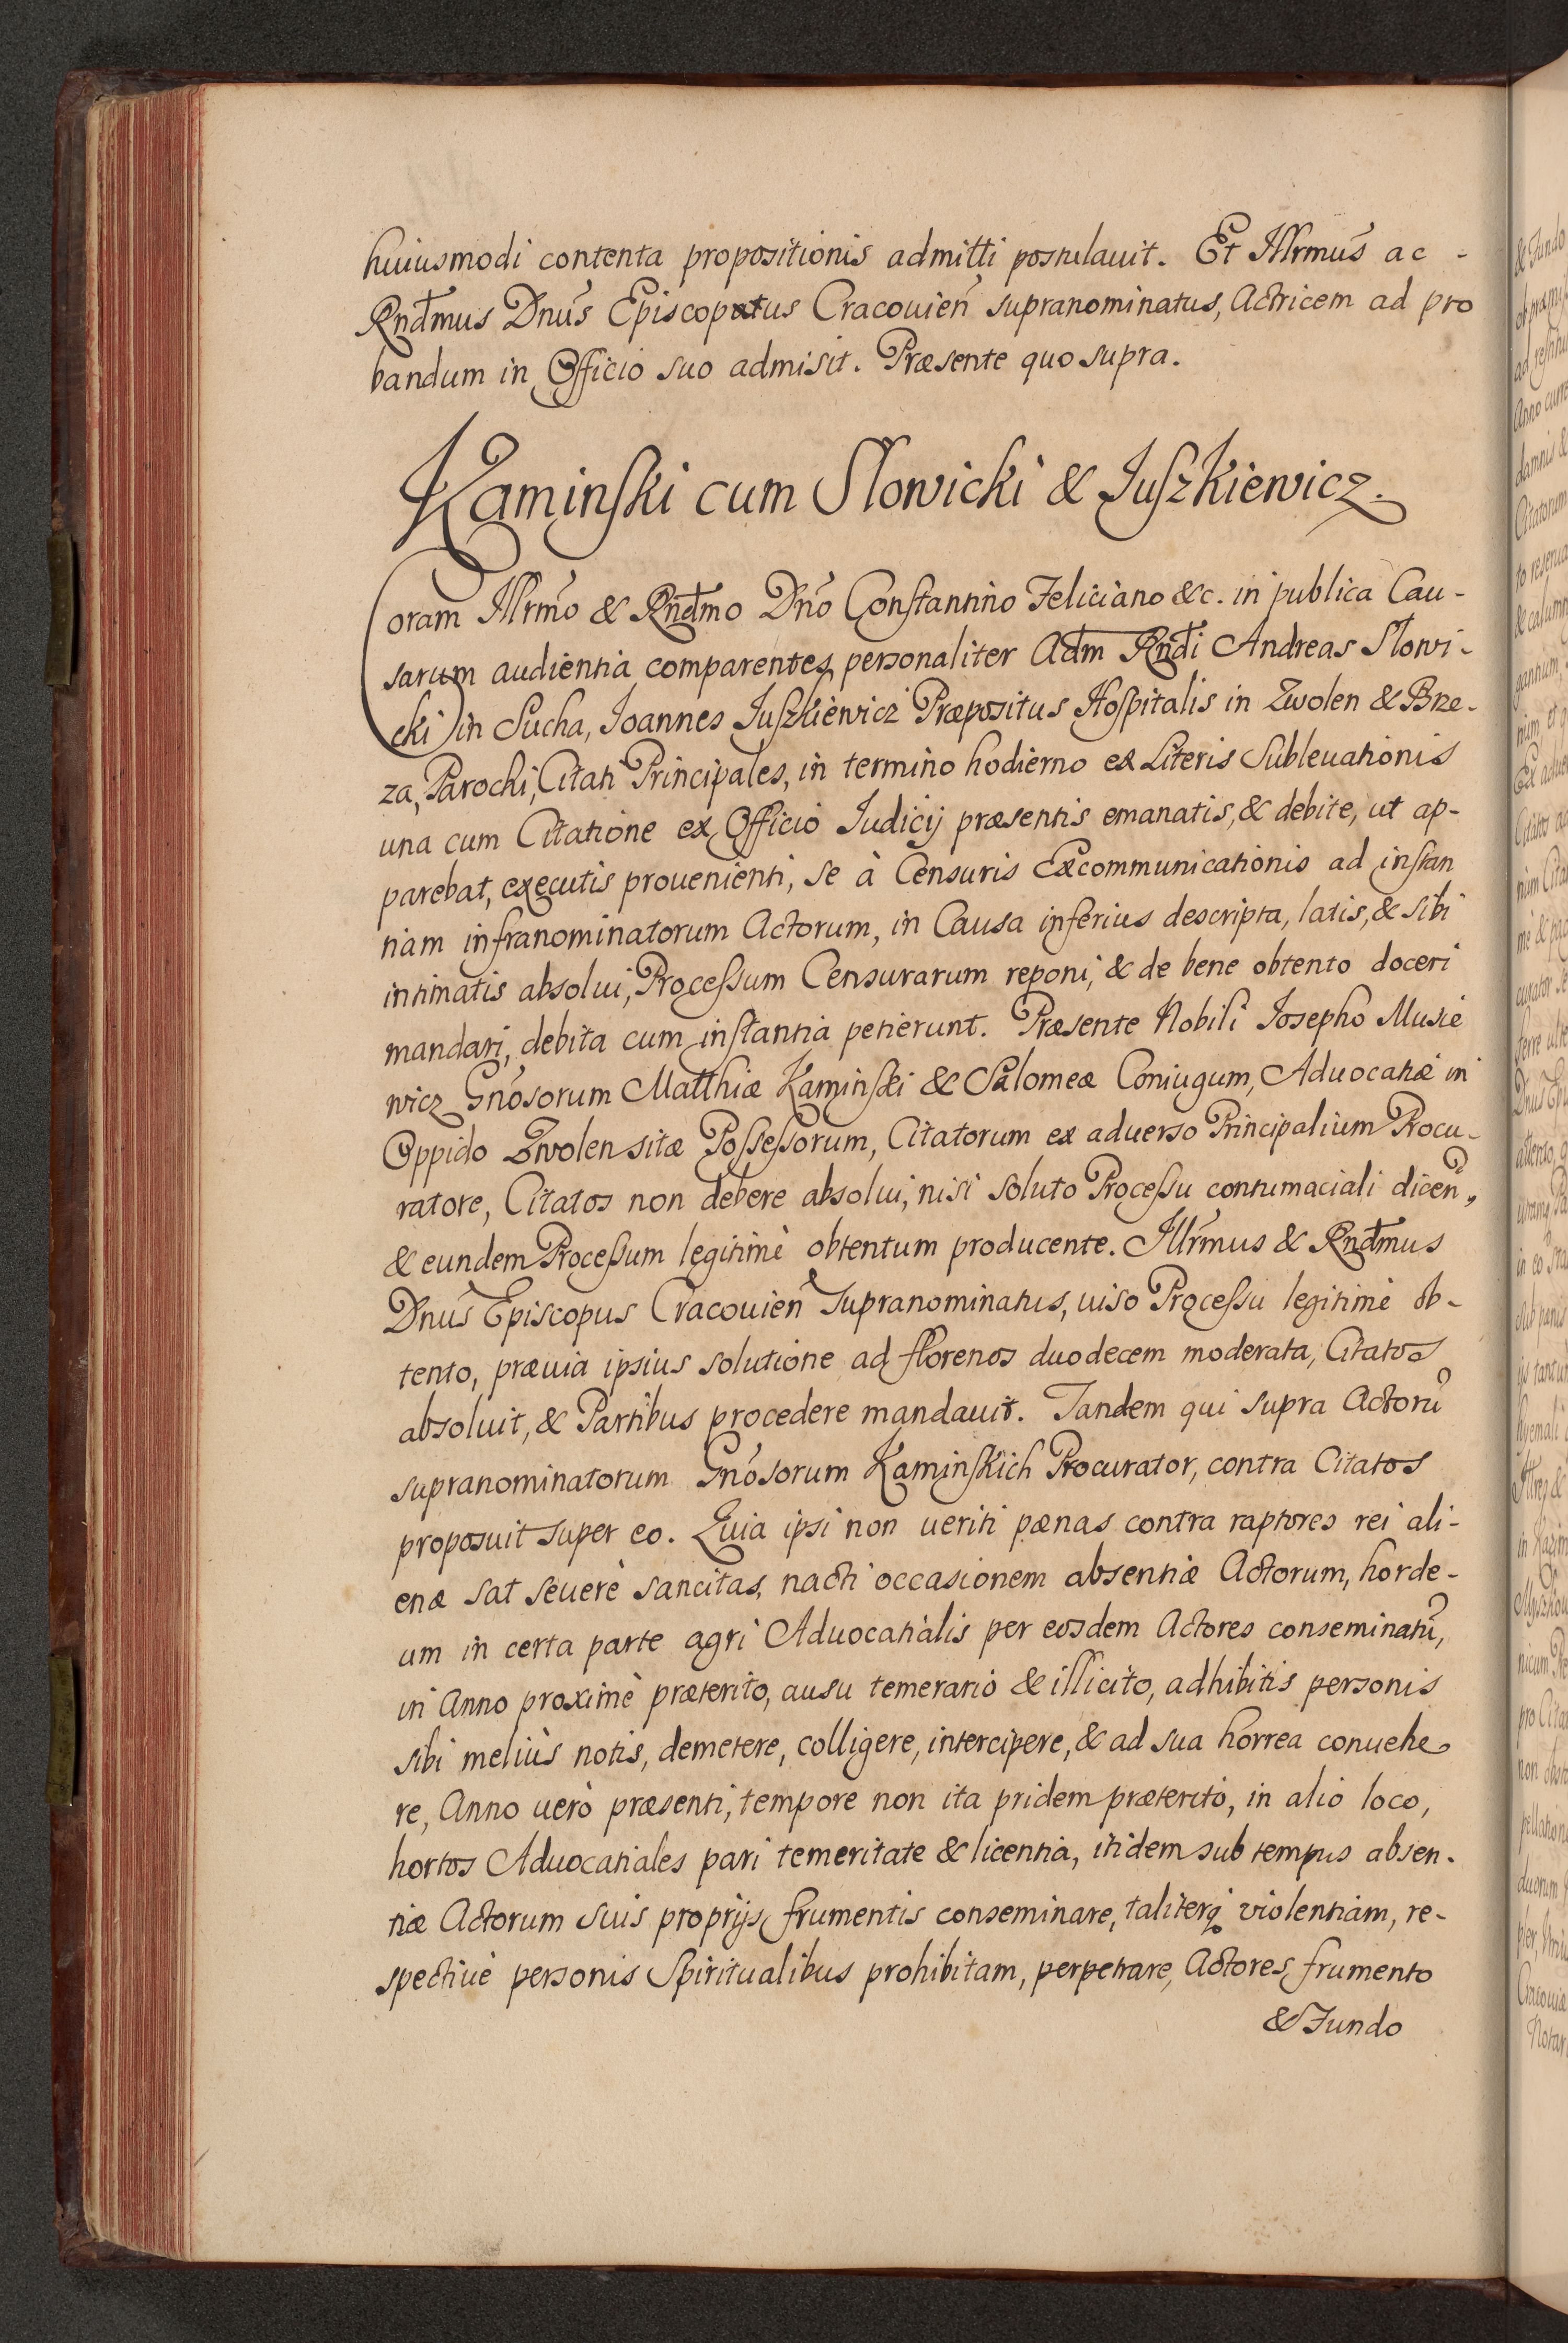 huiusmodi contenta propositionis admitti postulauit. Et Illrmus̃ ac -
Rnd̃mus Dnus̃ Episcopatus Cracouien̄ supranominatus, Actricem ad pro
bandum in Officio suo admisit. Præsente quo supra.
Kaminſki cum Slowicki & Juſzkiewicz.
Coram Illrmõ & Rnd̃mo Dnõ Conſtantino Feliciano &c. in publica Cau-
sarum audientia comparentes personaliter Ad̃m Rnd̃i Andreas Slowi-
cki in Sucha, Joannes Juſzkiewicz Præpositus Hoſpitalis in Zwolen & Brze-
za, Parochi, Citati Principales, in termino hodierno ex Literis Subleuationis
una cum Citatione ex Officio Judicij præsentis emanatis, & debite, ut ap-
parebat, executis prouenienti, se à Censuris Excommunicationis ad inſtan
tiam infranominatorum Actorum, in Causa inferius descripta, latis, & sibi
intimatis absolui, Proceſsum Censurarum reponi, & de bene obtento doceri
mandari, debita cum inſtantia petierunt. Præsente Nobili Josepho Musie
wicz Gnõsorum Matthiæ Kaminſki & Salomeæ Coniugum, Aduocatiæ in
Oppido Zwolen sitæ Poſseſsorum, Citatorum ex aduerso Principalium Procu-
ratore, Citatos non debere absolui, nisi soluto Proceſsu contumaciali dicen̄,
& eundem Proceſsum legitimè obtentum producente. Illrm̃us & Rnd̃mus
Dnus̃ Episcopus Cracouien̄ supranominatus, uiso Proceſsu legitimè ob-
tento, præuia ipsius solutione ad florenos duodecem moderata, Citatos
absoluit, & Partibus procedere mandauit. Tandem qui supra Actorũ
supranominatorum Gnõsorum Kaminſkich Procurator, contra Citatos
proposuit super eo. Quia ipsi non ueriti pænas contra raptores rei ali-
enæ sat seuerè sancitas, nacti occasionem absentiæ Actorum, horde-
um in certa parte agri Aduocatialis per eosdem Actores conseminatũ,
in Anno proximè præterito, ausu temerario & illicito, adhibitis personis
sibi meliùs notis, demetere, colligere, intercipere, & ad sua horrea conuehe
re, Anno uerò præsenti, tempore non ita pridem præterito, in alio loco,
hortos Aduocatiales pari temeritate & licentia, itidem sub tempus absen-
tiæ Actorum suis proprijs frumentis conseminare, taliterq; violentiam, re-
spectiuè personis Spiritualibus prohibitam, perpetrare, Actores frumento
& Fundo